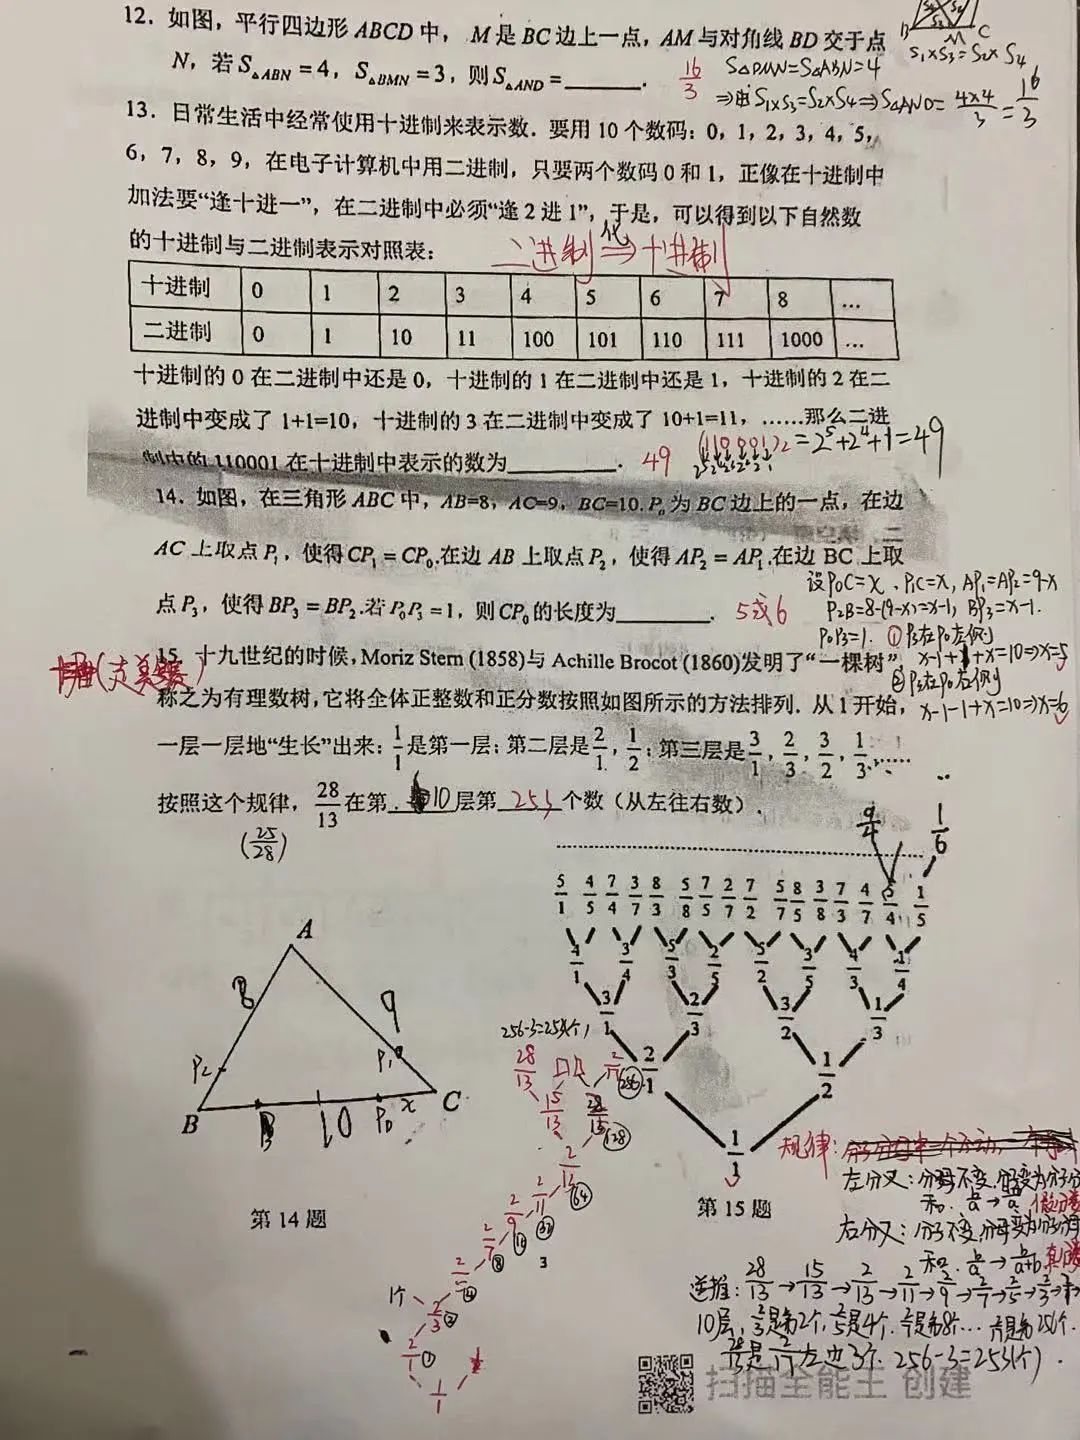 12. 如图，平行四边形 ABCD 中， M 是 BC 边上一点，AM 与对角线 BD 交于点
N，若 S△ABN = 4，S△BMN = 3，则 S△AND = ______.
16/3
B M C
S₁×S₃=S₂×S₄
S△DMN=S△ABN=4
⇒由S₁×S₃=S₂×S₄⇒S△AND=4×4/3=16/3
13. 日常生活中经常使用十进制来表示数．要用 10 个数码：0，1，2，3，4，5，
6，7，8，9，在电子计算机中用二进制，只要两个数码 0 和 1，正像在十进制中
加法要“逢十进一”，在二进制中必须“逢 2 进 1”，于是，可以得到以下自然数
的十进制与二进制表示对照表：
二进制 化⇒ 十进制
十进制 0 1 2 3 4 5 6 7 8 …
二进制 0 1 10 11 100 101 110 111 1000 …
十进制的 0 在二进制中还是 0，十进制的 1 在二进制中还是 1，十进制的 2 在二
进制中变成了 1+1=10，十进制的 3 在二进制中变成了 10+1=11，……那么二进
制中的 110001 在十进制中表示的数为______.
49 (110001)₂=2⁵+2⁴+1=49
14. 如图，在三角形 ABC 中，AB=8，AC=9，BC=10. P₀ 为 BC 边上的一点，在边
AC 上取点 P₁，使得 CP₁ = CP₀.在边 AB 上取点 P₂，使得 AP₂ = AP₁.在边 BC 上取
点 P₃，使得 BP₃ = BP₂.若 P₀P₃ = 1，则 CP₀ 的长度为______.
5或6
设P₀C=x、P₁C=x, AP₁=AP₂=9-x
P₂B=8-(9-x)=x-1, BP₃=x-1.
P₀P₃=1. ①P₃在P₀左侧
x-1+1+x=10⇒x=5
②P₃在P₀右侧
x-1-1+x=10⇒x=6
15. 十九世纪的时候，Moriz Stern (1858)与 Achille Brocot (1860)发明了“一棵树”，
称之为有理数树，它将全体正整数和正分数按照如图所示的方法排列．从 1 开始，
一层一层地“生长”出来：1/1 是第一层；第二层是 2/1，1/2；第三层是 3/1，2/3，3/2，1/3，……
按照这个规律，28/13 在第 10 层第 253 个数（从左往右数）．
(25/28)
9/4 1/6
5/1 4/5 7/4 3/7 8/3 5/8 7/5 2/7 7/2 5/7 8/5 3/8 7/3 4/7 5/4 1/5
4/1 3/4 5/3 2/5 5/2 3/5 4/3 1/4
3/1 2/3 3/2 1/3
2/1 1/2
1/1
A
8 9
P₂ P₁
B P₃ 10 P₀ x C
第 14 题
第 15 题
256-3=253(个)
28/13 口 口 2/17 256
15/13 28/15 2/15 128
2/13 64
2/11 32
2/9 16
2/7 8
2/5 4
1个 2/3 2
2/1 1
1/1
规律：
左分叉：分母不变,分子变为分子分母
和. b/a→ a+b/a 假分数
右分叉：分子不变,分母变为分子分母
和. b/a→b/a+b 真分数
逆推：28/13→15/13→2/13→2/11→2/9→2/7→2/5→2/3→2/1
10层，2/3是第2个，2/5是4个，2/7是第8个…2/17是第256个.
28/13是2/17左边3个. 256-3=253(个).
扫描全能王 创建